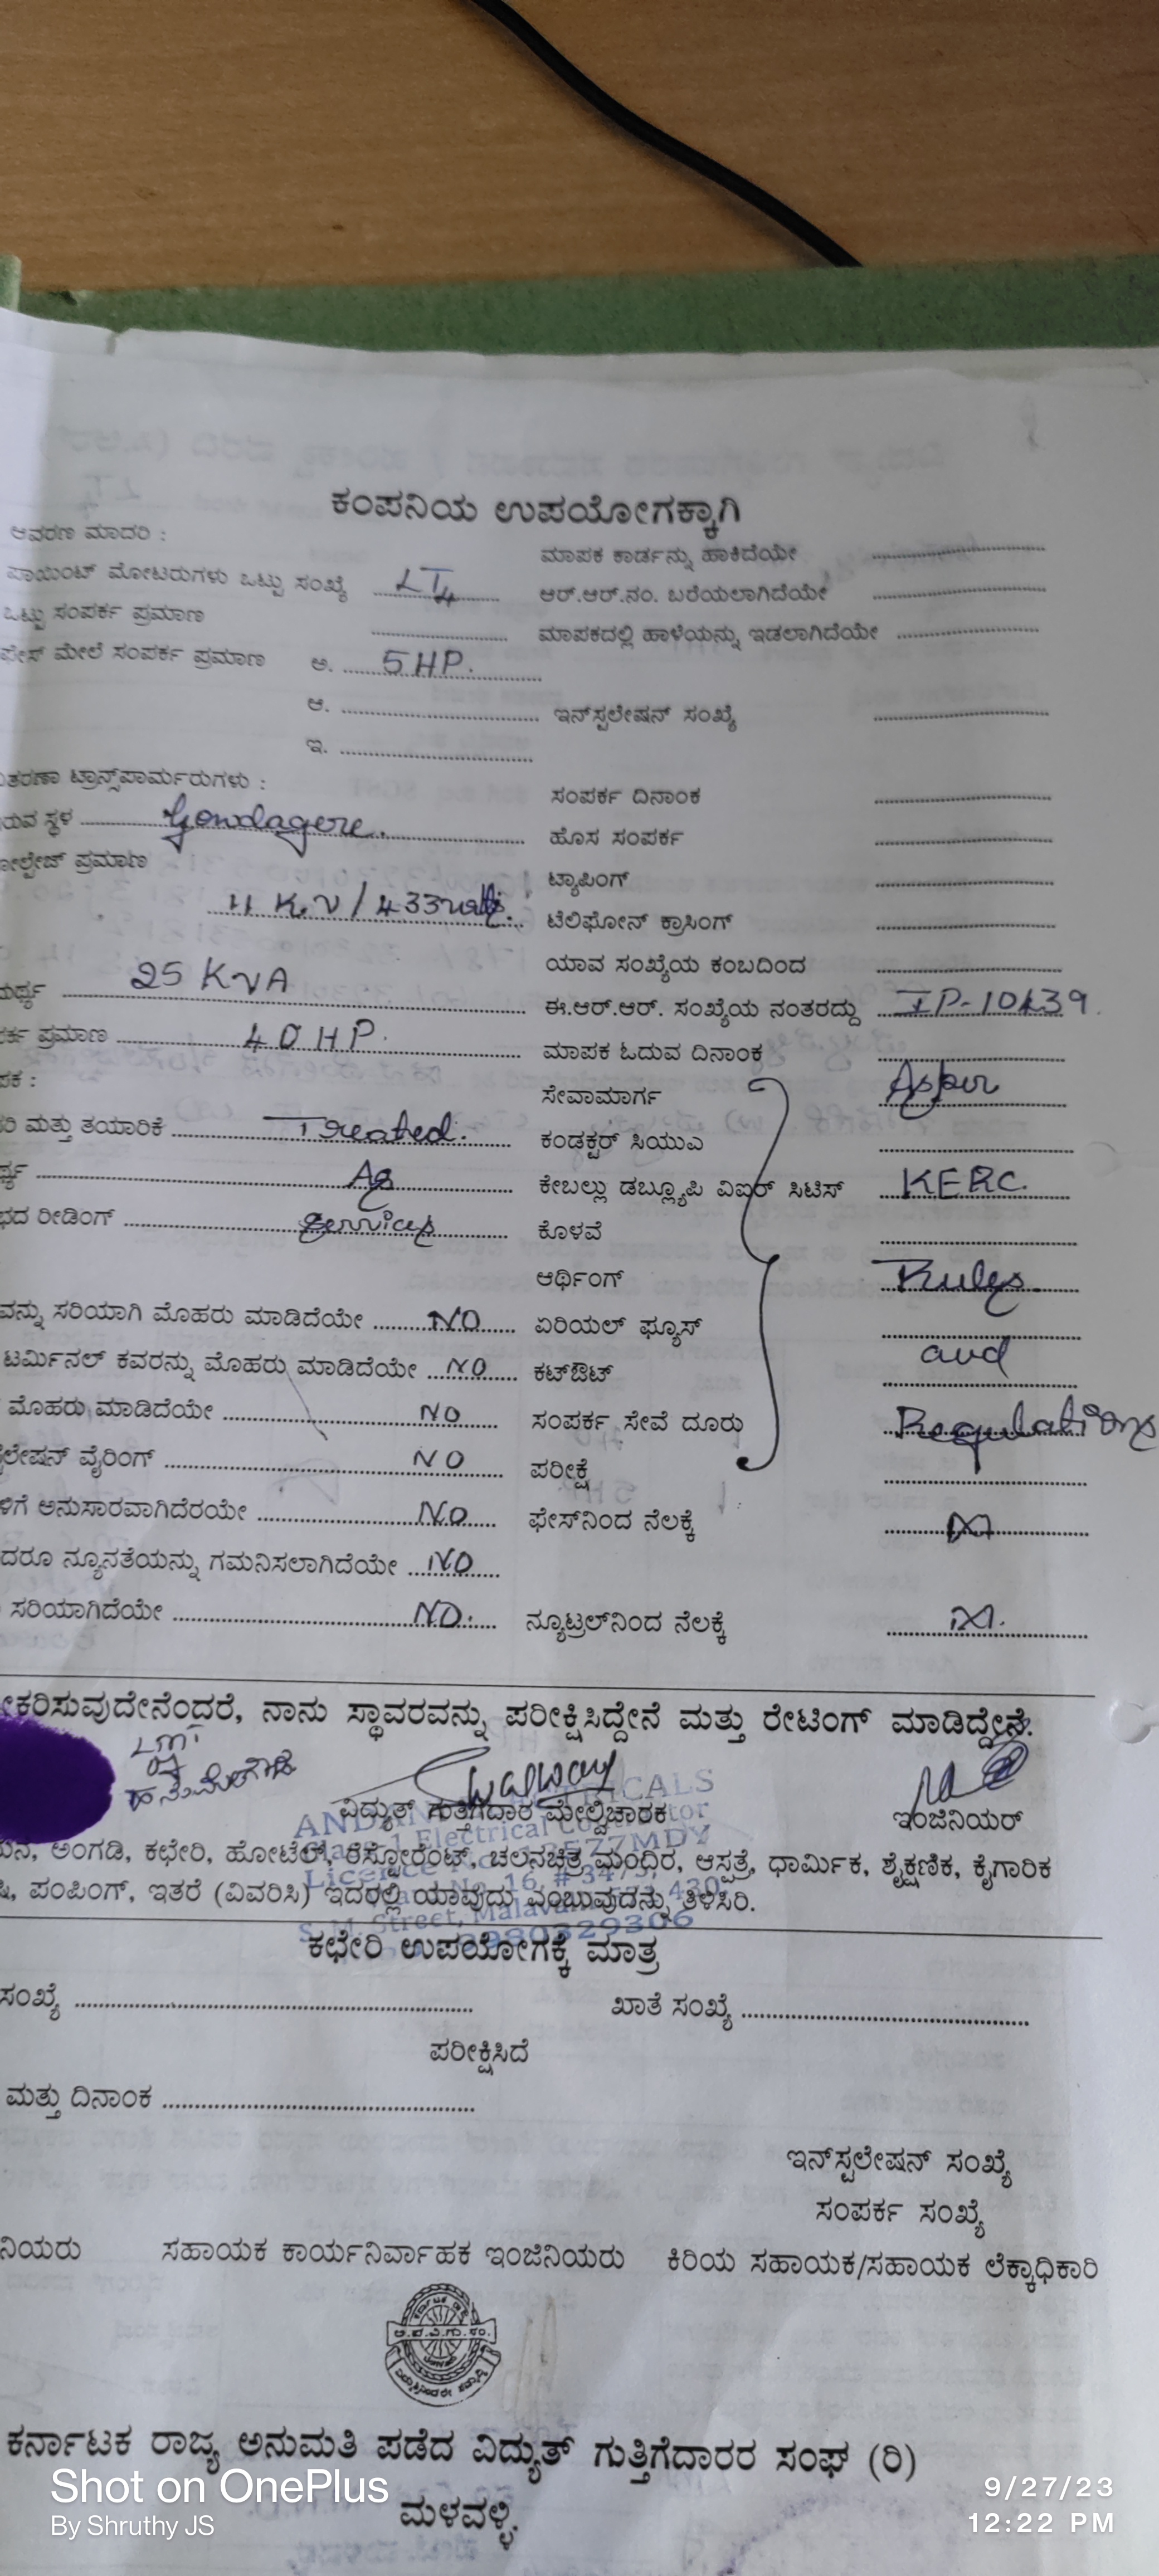 ಕಂಪನಿಯ ಉಪಯೋಗಕ್ಕಾಗಿ
ಆವರಣ ಮಾದರಿ :
ಮಾಪಕ ಕಾರ್ಡನ್ನು ಹಾಕಿದೆಯೇ
ಪಾಯಿಂಟ್ ಮೋಟರುಗಳು ಒಟ್ಟು ಸಂಖ್ಯೆ LT4
ಆರ್.ಆರ್.ನಂ. ಬರೆಯಲಾಗಿದೆಯೇ
ಒಟ್ಟು ಸಂಪರ್ಕ ಪ್ರಮಾಣ
ಮಾಪಕದಲ್ಲಿ ಹಾಳೆಯನ್ನು ಇಡಲಾಗಿದೆಯೇ
ಫೇಸ್ ಮೇಲೆ ಸಂಪರ್ಕ ಪ್ರಮಾಣ ಅ. 5 HP.
ಆ.
ಇನ್‌ಸ್ಟಲೇಷನ್ ಸಂಖ್ಯೆ
ಇ.
ತರಣಾ ಟ್ರಾನ್ಸ್‌ಪಾರ್ಮರುಗಳು :
ಸಂಪರ್ಕ ದಿನಾಂಕ
ರುವ ಸ್ಥಳ Gowdagere.
ಹೊಸ ಸಂಪರ್ಕ
ೋಲ್ಟೇಜ್ ಪ್ರಮಾಣ
ಟ್ಯಾಪಿಂಗ್
11 K.V / 433
ಟೆಲಿಫೋನ್ ಕ್ರಾಸಿಂಗ್
ಯಾವ ಸಂಖ್ಯೆಯ ಕಂಬದಿಂದ
ಮರ್ಥ್ಯ 25 KVA
ಈ.ಆರ್.ಆರ್. ಸಂಖ್ಯೆಯ ನಂತರದ್ದು IP-10439.
ರ್ಕ ಪ್ರಮಾಣ 40 HP.
ಮಾಪಕ ಓದುವ ದಿನಾಂಕ
ಪಕ :
ಸೇವಾಮಾರ್ಗ Asper
ರಿ ಮತ್ತು ತಯಾರಿಕೆ Treated.
ಕಂಡಕ್ಟರ್ ಸಿಯುಎ
ರ್ಥ್ಯ As
ಕೇಬಲ್ಲು ಡಬ್ಲ್ಯೂಪಿ ವಿಐರ್ ಸಿಟಿಸ್ KERC.
ಭದ ರೀಡಿಂಗ್
ಕೊಳವೆ
ಆರ್ಥಿಂಗ್ Rules.
ವನ್ನು ಸರಿಯಾಗಿ ಮೊಹರು ಮಾಡಿದೆಯೇ NO
ಏರಿಯಲ್ ಫ್ಯೂಸ್
and
ಟರ್ಮಿನಲ್ ಕವರನ್ನು ಮೊಹರು ಮಾಡಿದೆಯೇ NO
ಕಟ್‌ಔಟ್
ಮೊಹರು ಮಾಡಿದೆಯೇ NO
ಸಂಪರ್ಕ ಸೇವೆ ದೂರು Regulations
ಲೇಷನ್ ವೈರಿಂಗ್ NO
ಪರೀಕ್ಷೆ
ಳಿಗೆ ಅನುಸಾರವಾಗಿದೆರಯೇ NO
ಫೇಸ್‌ನಿಂದ ನೆಲಕ್ಕೆ
ದರೂ ನ್ಯೂನತೆಯನ್ನು ಗಮನಿಸಲಾಗಿದೆಯೇ NO
ಸರಿಯಾಗಿದೆಯೇ NO.
ನ್ಯೂಟ್ರಲ್‌ನಿಂದ ನೆಲಕ್ಕೆ
ೀಕರಿಸುವುದೇನೆಂದರೆ, ನಾನು ಸ್ಥಾವರವನ್ನು ಪರೀಕ್ಷಿಸಿದ್ದೇನೆ ಮತ್ತು ರೇಟಿಂಗ್ ಮಾಡಿದ್ದೇನೆ.
ವಿದ್ಯುತ್ ಗುತ್ತಿಗೆದಾರ ಮೇಲ್ವಿಚಾರಕ
ಇಂಜಿನಿಯರ್
ಅಂಗಡಿ, ಕಛೇರಿ, ಹೋಟೆಲ್, ರೆಸ್ಟೋರೆಂಟ್, ಚಲನಚಿತ್ರ ಮಂದಿರ, ಆಸ್ಪತ್ರೆ, ಧಾರ್ಮಿಕ, ಶೈಕ್ಷಣಿಕ, ಕೈಗಾರಿಕ
ಪಂಪಿಂಗ್, ಇತರೆ (ವಿವರಿಸಿ) ಇದರಲ್ಲಿ ಯಾವುದು ಎಂಬುವುದನ್ನು ತಿಳಿಸಿರಿ.
ಕಛೇರಿ ಉಪಯೋಗಕ್ಕೆ ಮಾತ್ರ
ಸಂಖ್ಯೆ
ಖಾತೆ ಸಂಖ್ಯೆ
ಪರೀಕ್ಷಿಸಿದೆ
ಮತ್ತು ದಿನಾಂಕ
ಇನ್‌ಸ್ಟಲೇಷನ್ ಸಂಖ್ಯೆ
ಸಂಪರ್ಕ ಸಂಖ್ಯೆ
ನಿಯರು ಸಹಾಯಕ ಕಾರ್ಯನಿರ್ವಾಹಕ ಇಂಜಿನಿಯರು ಕಿರಿಯ ಸಹಾಯಕ/ಸಹಾಯಕ ಲೆಕ್ಕಾಧಿಕಾರಿ
ಕರ್ನಾಟಕ ರಾಜ್ಯ ಅನುಮತಿ ಪಡೆದ ವಿದ್ಯುತ್ ಗುತ್ತಿಗೆದಾರರ ಸಂಘ (ರಿ)
ಮಳವಳ್ಳಿ.
Shot on OnePlus
By Shruthy JS
9/27/23
12:22 PM